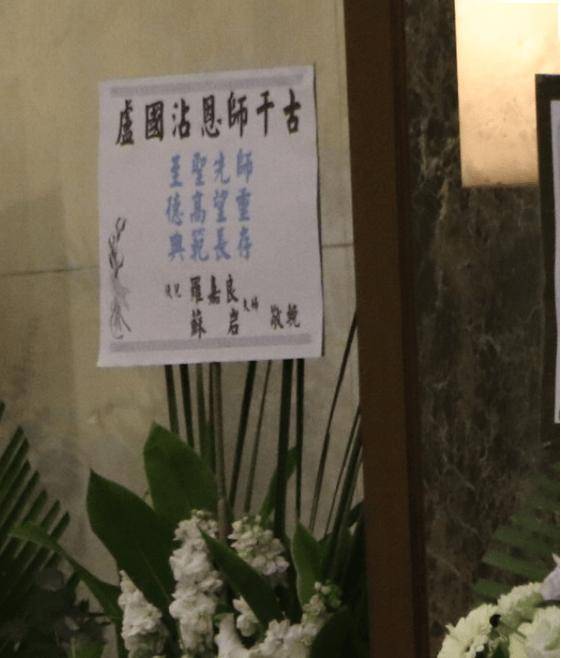 盧國沾恩師千古
至聖先師
德高望重
典範長存
羅嘉良
蘇岩 夫婦 敬輓